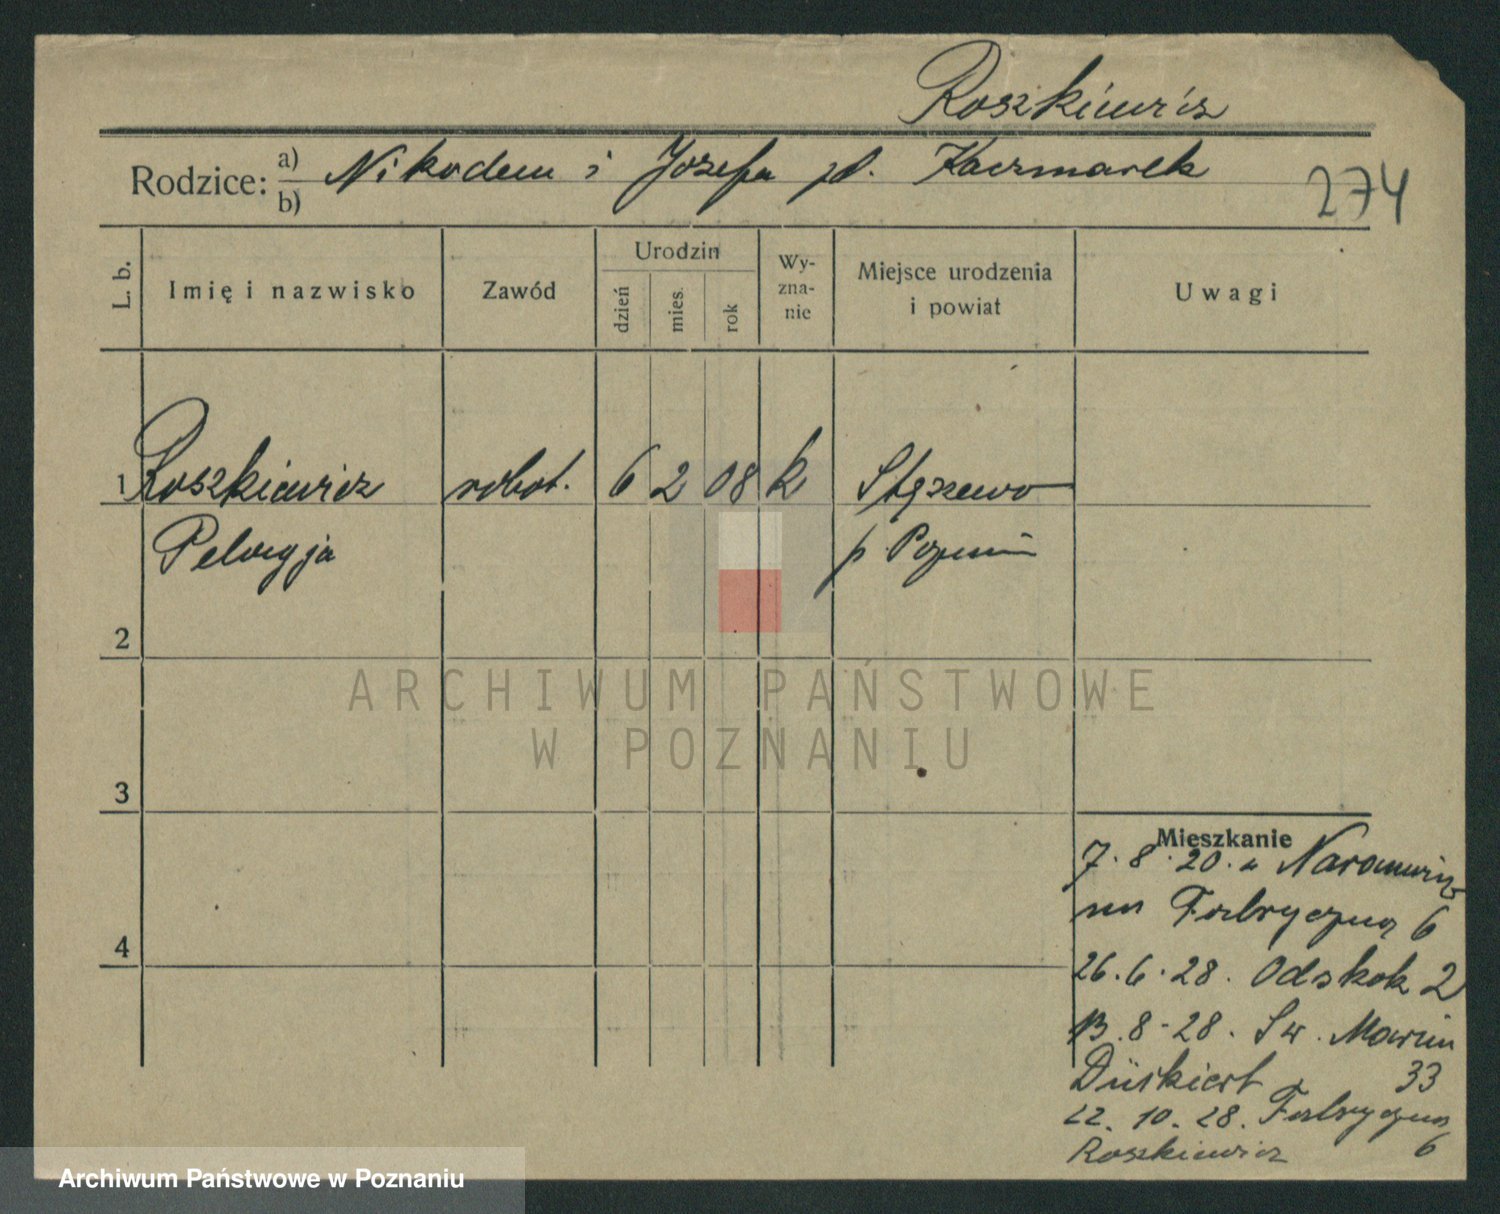 Roszkiewicz
Rodzice: a) b) Nikodem i Józefa zd. Kaczmarek
274
L. b. Imię i nazwisko Zawód Urodzin dzień mies. rok Wyznanie Miejsce urodzenia i powiat Uwagi
1 Roszkiewicz robot. 6 2 08 k Stęszewo
Pelagja p. Poznań
2
ARCHIWUM PAŃSTWOWE
W POZNANIU
3
Mieszkanie
7.8.20. z
4
na Fabryczna 6
26.6.28. Odskok 2
13.8.28. Św. Marcin
33
22.10.28. Fabryczna
Roszkiewicz 6
Archiwum Państwowe w Poznaniu